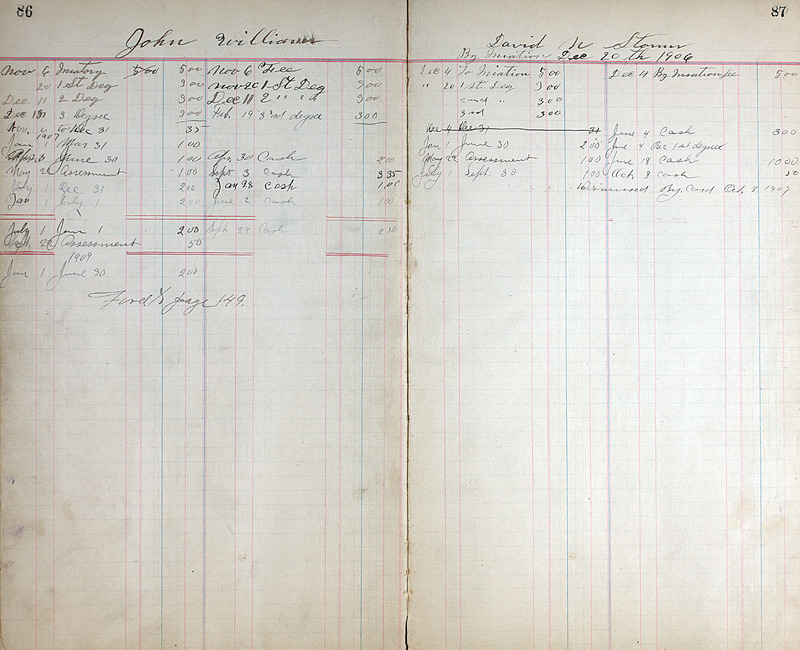 86
John Williams
Nov 6 Initory 5 00 5 00 Nov 6 Fee 5 00
20 1 St Deg 3 00 Nov 20 1 St Deg 3 00
Dec 11 2 Deg 3 00 Dec 11 2 " " 3 00
Dec 3 Degree 3 00 Feb 19 3rd degree 3 00
Nov to Dec 31 35
1907
Jan 1 Mar 31 1 00
June 30 1 00 Apr 30 Cash 2 00
May 22 Assessment 1 00 Sept 3 Cash 3 35
July 1 Dec 31 2 00 Jan 28 Cash 1 00
Jan 1 July 1 2 00 June 2 Cash 1 00
July 1 Jan 1 2 00 Sept 29 Cash 2 50
Sept 22 Assessment 50
1909
Jan 1 June 30 2 00
Ford to page 149.
87
David W Storm
By Iniation Dec 20th 1906
Dec 4 To Iniation 5 00 Dec 4 By Iniation fee 5 00
" 20 1st Deg 3 00
2nd " 3 00
3rd 3 00
Dec 4 Dec 31 31 June 4 Cash 3 00
Jan 1 June 30 2 00 June 4 Rec 1st degree
May 22 Assessment 1 00 June 18 Cash 10 00
July 1 Sept. 30 1 00 Oct 8 cash 50
Dismissed By Card Oct 8 1907